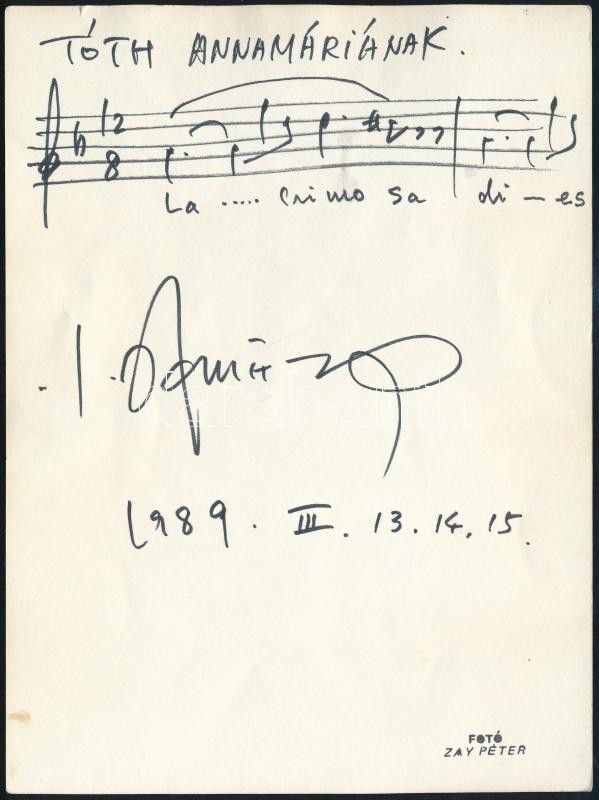 TÓTH ANNAMÁRIÁNAK.
12
8
La ..... crimo sa di - es
1989. III. 13. 14. 15.
FOTÓ
ZAY PÉTER